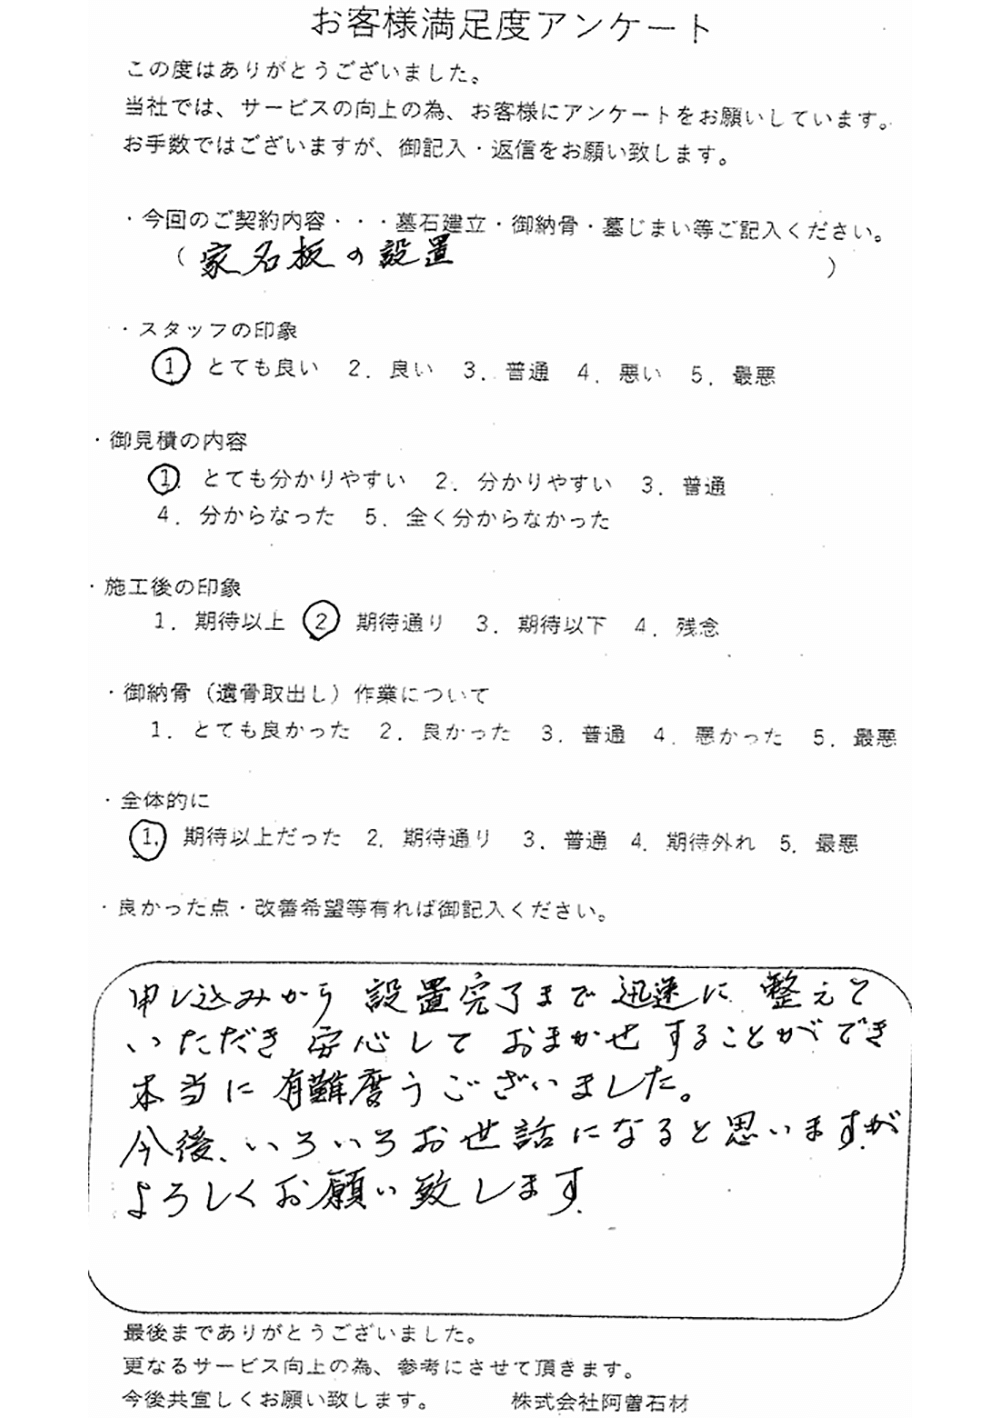 お客様満足度アンケート
この度はありがとうございました。
当社では、サービスの向上の為、お客様にアンケートをお願いしています。
お手数ではございますが、御記入・返信をお願い致します。
・今回のご契約内容・・・墓石建立・御納骨・墓じまい等ご記入ください。
（家名板の設置）
・スタッフの印象
1 とても良い 2．良い 3．普通 4．悪い 5．最悪
・御見積の内容
1. とても分かりやすい 2．分かりやすい 3．普通
4．分からなった 5．全く分からなかった
・施工後の印象
1．期待以上 2 期待通り 3．期待以下 4．残念
・御納骨（遺骨取出し）作業について
1．とても良かった 2．良かった 3．普通 4．悪かった 5．最悪
・全体的に
1. 期待以上だった 2．期待通り 3．普通 4．期待外れ 5．最悪
・良かった点・改善希望等有れば御記入ください。
申し込みから 設置完了まで 迅速に 整えて
いただき 安心して おまかせ することができ
本当に 有難度うございました。
今後、いろいろお世話になると思いますが
よろしくお願い致します
最後までありがとうございました。
更なるサービス向上の為、参考にさせて頂きます。
今後共宜しくお願い致します。 株式会社阿曽石材